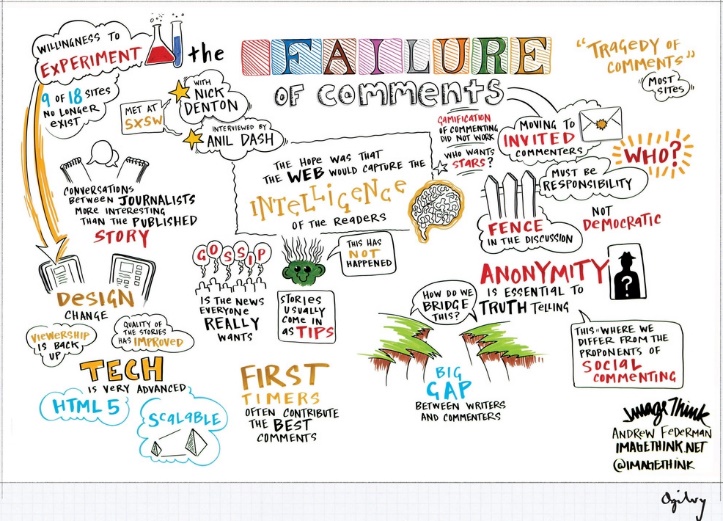 WILLINGNESS TO
EXPERIMENT
9 OF 18 SITES
NO LONGER
EXIST
the FAILURE
OF COMMENTS
"TRAGEDY OF
COMMENTS"
MOST
SITES
MET AT
SXSW
WITH
NICK
DENTON
INTERVIEWED BY
ANIL DASH
THE HOPE WAS THAT
THE WEB WOULD CAPTURE THE
INTELLIGENCE
OF THE READERS
GAMIFICATION
OF COMMENTING
DID NOT WORK
WHO WANTS
STARS?
MOVING TO
INVITED
COMMENTERS
WHO?
MUST BE
RESPONSIBILITY
FENCE
IN THE DISCUSSION
NOT
DEMOCRATIC
CONVERSATIONS
BETWEEN JOURNALISTS
MORE INTERESTING
THAN THE PUBLISHED
STORY
GOSSIP
IS THE NEWS
EVERYONE
REALLY
WANTS
THIS HAS
NOT
HAPPENED
STORIES
USUALLY
COME IN
AS TIPS
ANONYMITY
IS ESSENTIAL TO
TRUTH TELLING
?
HOW DO WE
BRIDGE
THIS?
THIS IS WHERE WE
DIFFER FROM THE
PROPONENTS OF
SOCIAL
COMMENTING
DESIGN
CHANGE
VIEWERSHIP
IS BACK
UP
QUALITY OF
THE STORIES
HAS IMPROVED
TECH
IS VERY ADVANCED
HTML 5
SCALABLE
FIRST
TIMERS
OFTEN CONTRIBUTE
THE BEST
COMMENTS
BIG
GAP
BETWEEN WRITERS
AND COMMENTERS
ImageThink
ANDREW FEDERMAN
IMAGETHINK.NET
@IMAGETHINK
Ogilvy